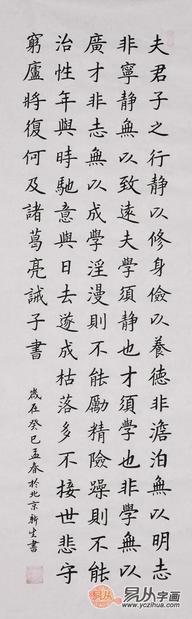 夫君子之行静以修身儉以養德非澹泊無以明志
非寧静無以致遠夫學須静也才須學也非學無以
廣才非志無以成學淫漫則不能勵精險躁則不能
治性年與時馳意與日去遂成枯落多不接世悲守
窮廬將復何及諸葛亮誡子書
歲在癸巳孟春於北京靳生書
易从字画
www.yczihua.com